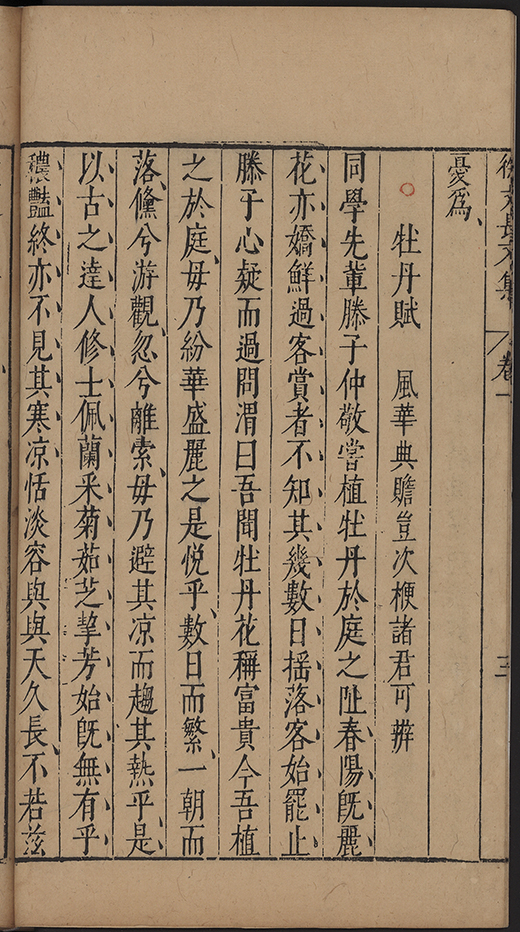 徐文長文集 卷一 三
憂爲
牡丹賦 風華典贍豈次楩諸君可辦
同學先輩滕子仲敬嘗植牡丹於庭之阯春陽旣麗
花亦嬌鮮過客賞者不知其幾數日揺落客始罷止
滕子心疑而過問渭曰吾聞牡丹花稱富貴今吾植
之於庭毋乃紛華盛麗之是悅乎數日而繁一朝而
落儵兮游觀忽兮離索毋乃避其凉而趨其熱乎是
以古之達人修士佩蘭采菊茹芝挚芳始旣無有乎
穠豔終亦不見其寒凉恬淡容與與天久長不若茲